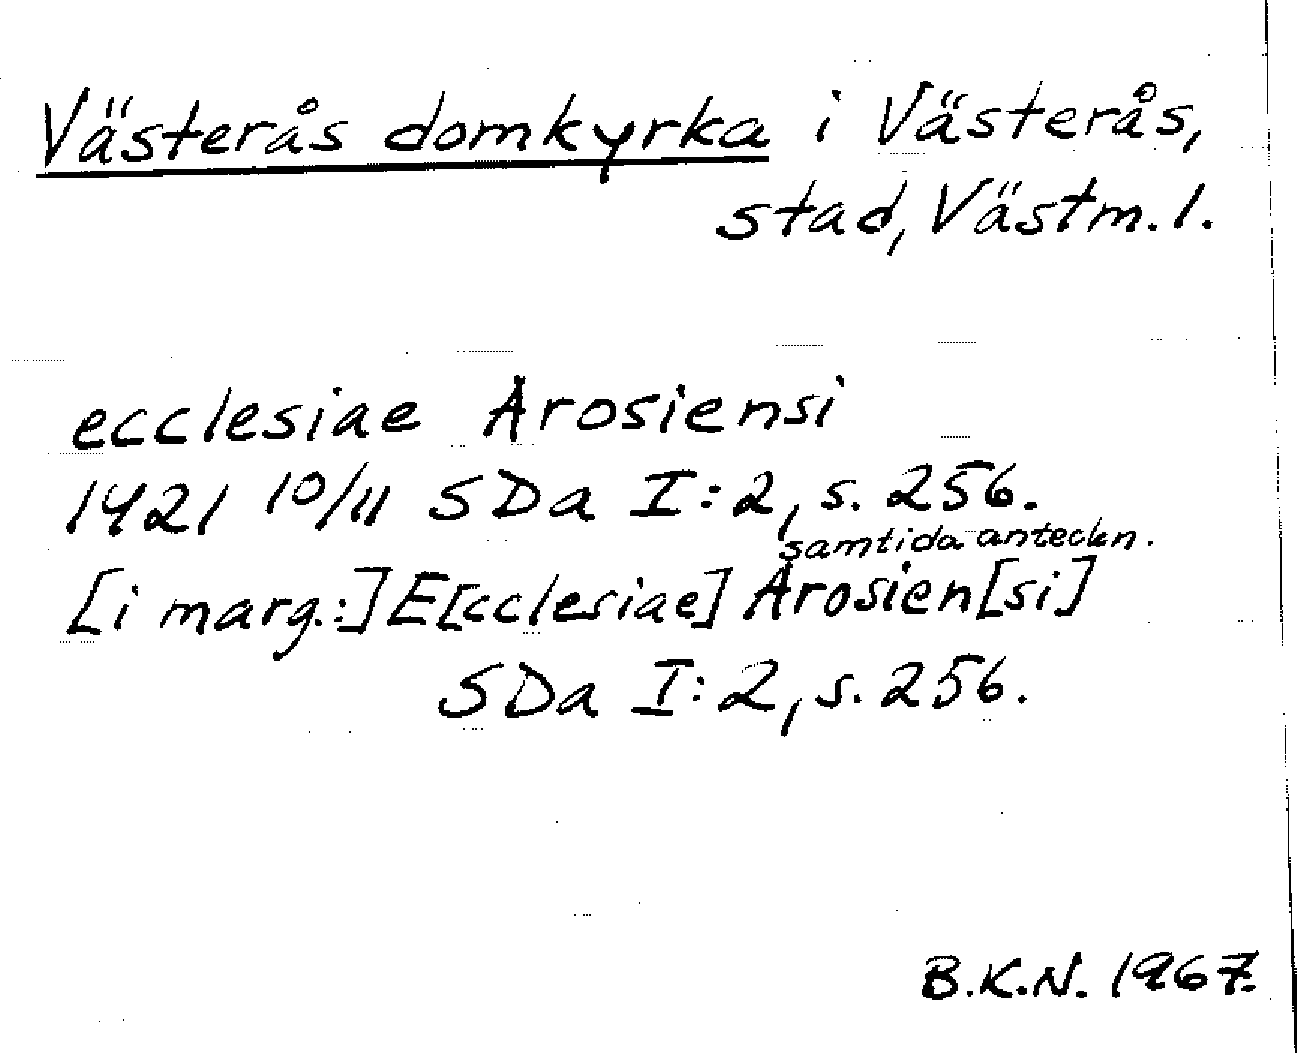 Västerås domkyrka i Västerås,
stad, Västm. l.
ecclesiae Arosiensi
1421 10/11 SDa I:2, s. 256.
samtida anteckn.
[i marg.:] E[cclesiae] Arosien[si]
SDa I:2, s. 256.
B.K.N. 1967.